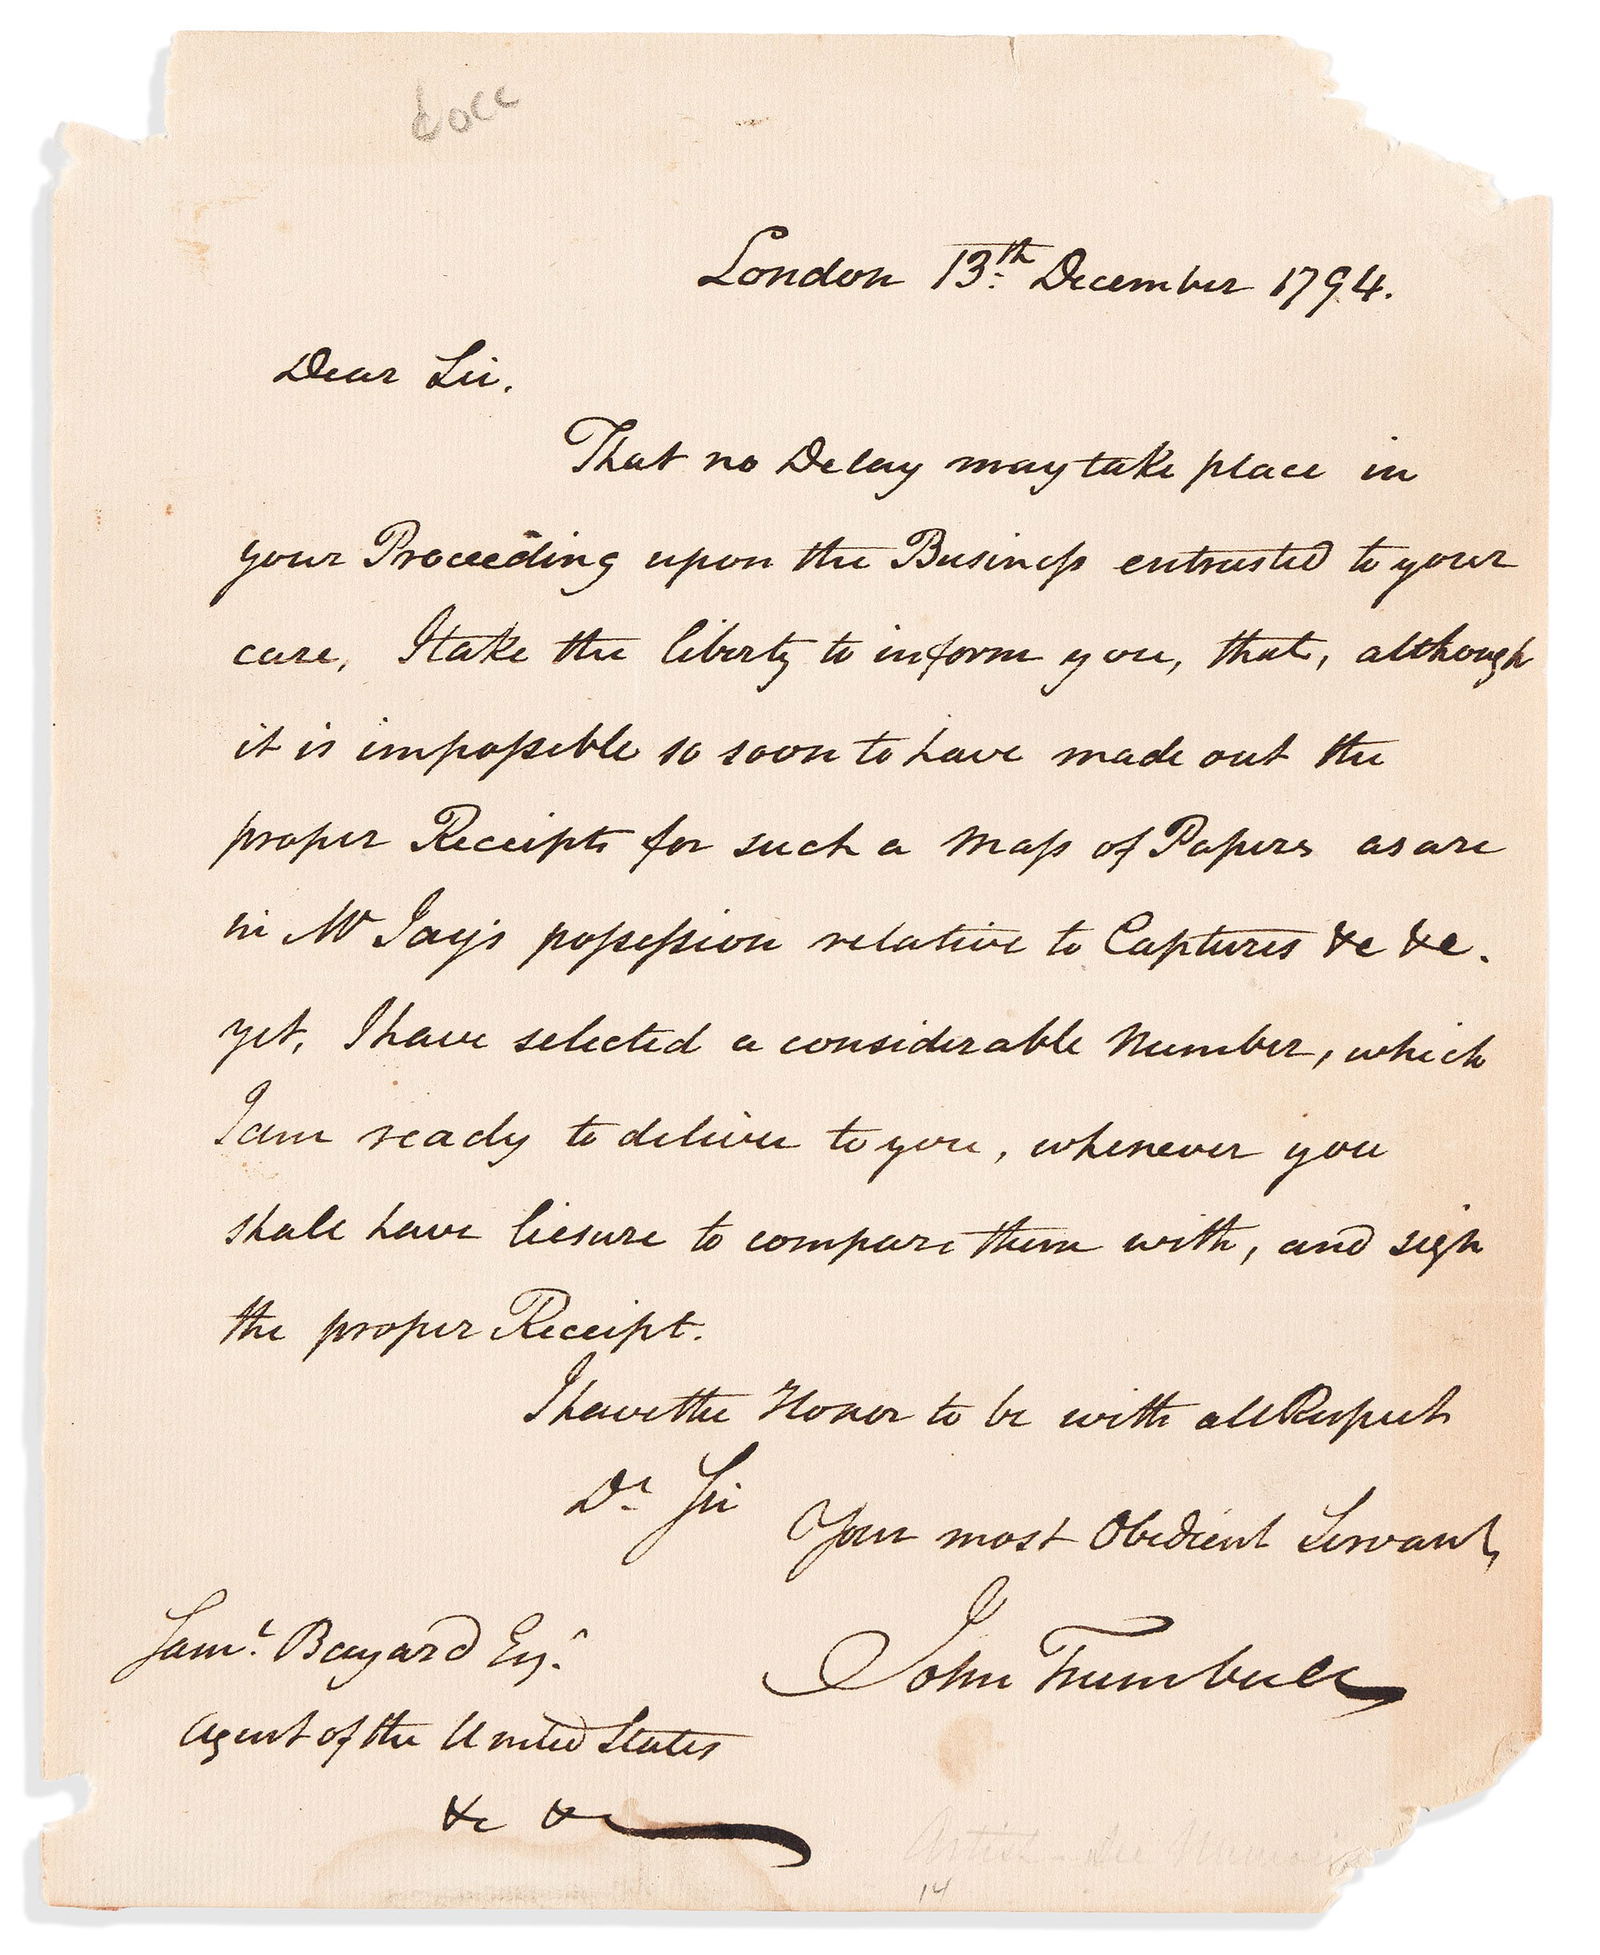 London 13th December 1794.
Dear Sir.
That no Delay may take place in
your Proceeding upon the Business entrusted to your
care, I take the liberty to inform you, that, although
it is impossible so soon to have made out the
proper Receipts for such a Mass of Papers as are
in Mr Jay's possession relative to Captures &c &c.
yet, I have selected a considerable Number, which
I am ready to deliver to you, whenever you
shall have liesure to compare them with, and sign
the proper Receipt.
I have the Honor to be with all Respect
Dr Sir
Your most Obedient Servant,
John Trumbull
Saml. Bayard Esqr.
Agent of the United States
&c &c
Artist
14